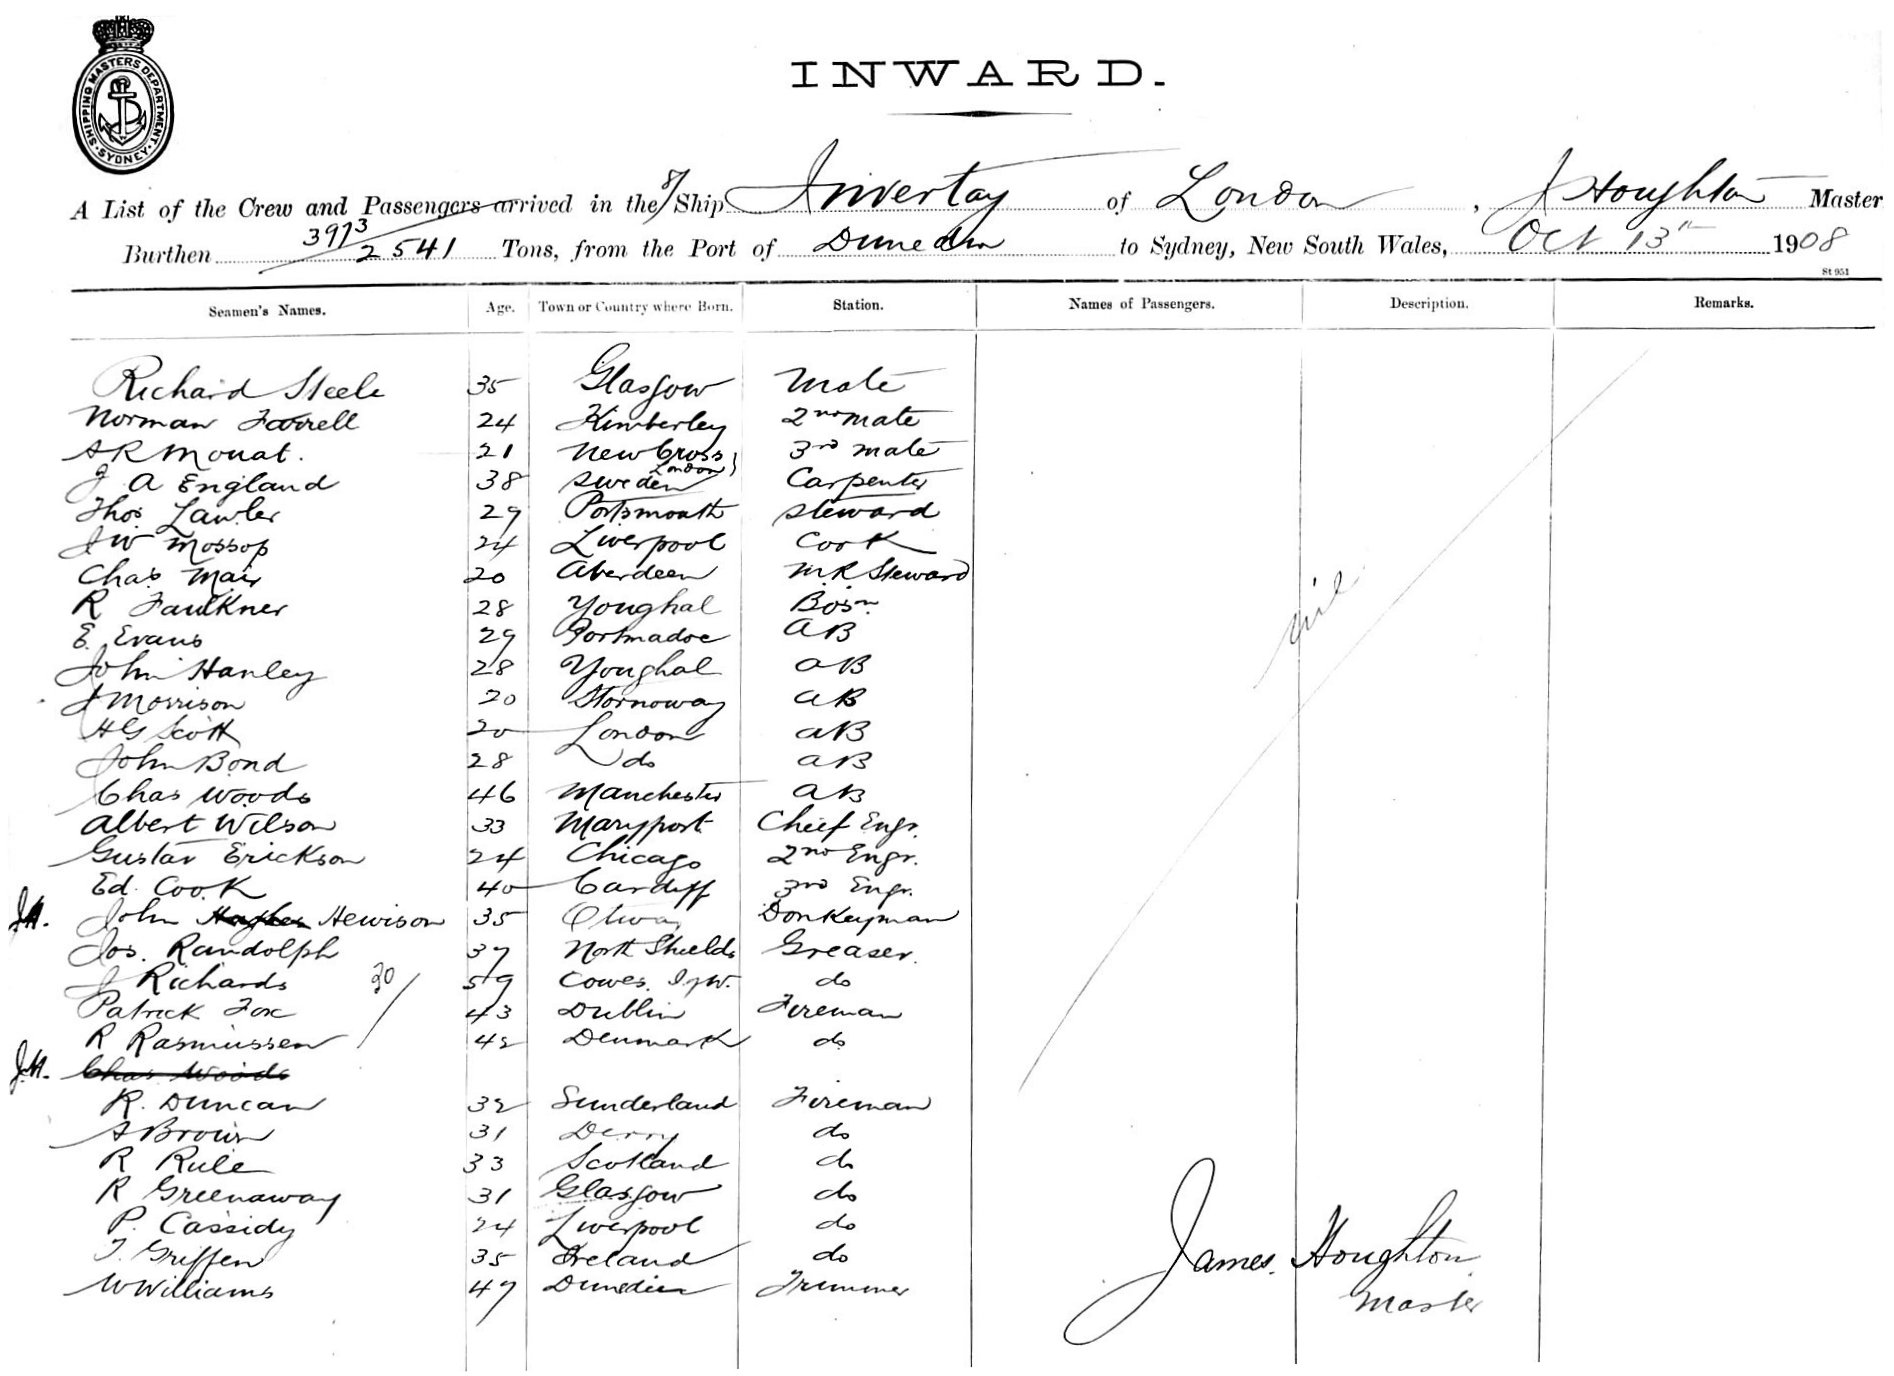 SHIPPING MASTERS DEPARTMENT. SYDNEY.
INWARD.
A List of the Crew and Passengers arrived in the S/ Ship Invertay of London, J Houghton Master
3973
Burthen 2541 Tons, from the Port of Dunedin to Sydney, New South Wales, Oct 13th 1908
St 951
Seamen's Names. Age. Town or Country where Born. Station. Names of Passengers. Description. Remarks.
Richard Steele 35 Glasgow Mate
Norman Farrell 24 Kimberley 2nd Mate
A R Mouat. 21 New Cross London 3rd Mate
J A England 38 Sweden Carpenter
Thos Lawler 29 Portsmouth Steward
J W Mossop 24 Liverpool Cook
Chas Mair 20 Aberdeen M.R. Steward
R Faulkner 28 Youghal Bosn.
nil
E. Evans 29 Portmadoc AB
John Hanley 28 Youghal AB
J Morrison 20 Stornoway AB
H G Scott 20 London AB
John Bond 28 do AB
Chas Woods 46 Manchester AB
Albert Wilson 33 Maryport Chief Engr.
Gustav Erickson 24 Chicago 2nd Engr.
Ed. Cook 40 Cardiff 3rd Engr.
J.H. John Hewison 35 Donkeyman
Jos. Randolph 37 North Shields Greaser.
J Richards 30/ 59 Cowes. I of W. do
Patrick Fox 43 Dublin Fireman
R Rasmussen 42 Denmark do
J.H. Chas Woods
R. Duncan 32 Sunderland Fireman
A Brown 31 Derry do
R Rule 33 Scotland do
R Greenaway 31 Glasgow do
P. Cassidy 24 Liverpool do
T. Griffen 35 Ireland do
W Williams 47 Dunedin Trimmer
James. Houghton
Master